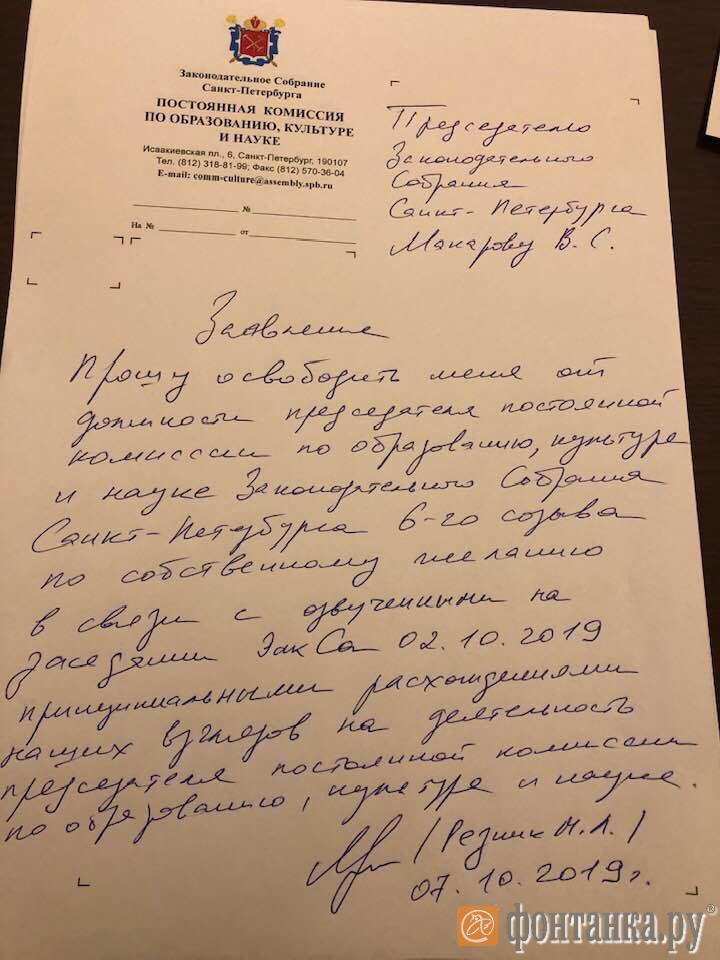 Законодательное Собрание
Санкт-Петербурга
ПОСТОЯННАЯ КОМИССИЯ
ПО ОБРАЗОВАНИЮ, КУЛЬТУРЕ
И НАУКЕ
Исаакиевская пл., 6, Санкт-Петербург, 190107
Тел. (812) 318-81-99; Факс (812) 570-36-04
E-mail: comm-culture@assembly.spb.ru
№
На № от
Председателю
Законодательного
Собрания
Санкт-Петербурга
Макарову В. С.
Заявление
Прошу освободить меня от
должности председателя постоянной
комиссии по образованию, культуре
и науке Законодательного Собрания
Санкт-Петербурга 6-го созыва
по собственному желанию
в связи с озвученными на
заседании ЗакСа 02.10.2019
принципиальными расхождениями
наших взглядов на деятельность
председателя постоянной комиссии
по образованию, культуре и науке.
/Резник М.Л./
07.10.2019г.
фонтанка.ру®